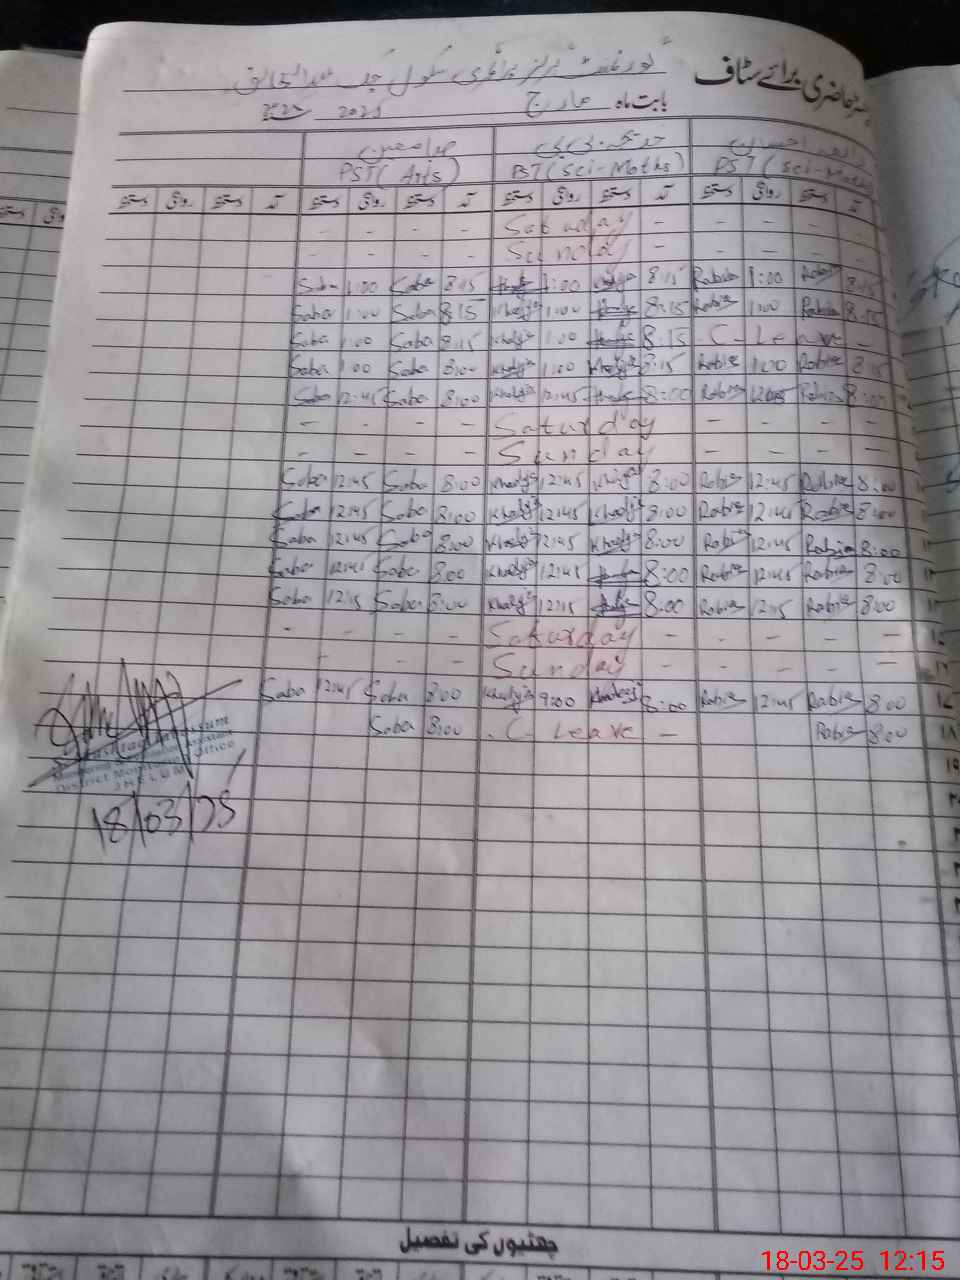 رجسٹر حاضری برائے سٹاف
گورنمنٹ گرلز پرائمری سکول چک عبدالخالق
بابت ماہ مارچ 2025
PST (Sci-Maths) PST (Sci-Maths) PST (Arts)
آمد دستخط روانگی دستخط آمد دستخط روانگی دستخط آمد دستخط روانگی دستخط آمد دستخط روانگی دستخط
- - - - Saturday - - - - -
- - - - Sunday - - - - -
Saba 1:00 Saba 8:15 1:00 Khadija 8:15 Rabia 1:00 Rabia 8:15
Saba 1:00 Saba 8:15 Khadija 1:00 8:15 Rabia 1:00 Rabia 8:15
Saba 1:00 Saba 8:15 Khadija 1:00 8:15 - C - Leave -
Saba 1:00 Saba 8:00 Khadija 1:00 Khadija 8:15 Rabia 1:00 Rabia 8:15
Saba 12:45 Saba 8:00 Khadija 12:45 8:00 Rabia 12:45 Rabia 8:00
- - - - Saturday - - - -
- - - - Sunday - - - -
Saba 12:45 Saba 8:00 Khadija 12:45 Khadija 8:00 Rabia 12:45 Rabia 8:00
Saba 12:45 Saba 8:00 Khadija 12:45 Khadija 8:00 Rabia 12:45 Rabia 8:00
Saba 12:45 Saba 8:00 Khadija 12:45 Khadija 8:00 Rabia 12:45 Rabia 8:00 ۱۲
Saba 12:45 Saba 8:00 Khadija 12:45 8:00 Rabia 12:45 Rabia 8:00 ۱۳
Saba 12:15 Saba 8:00 Khadija 12:15 8:00 Rabia 12:15 Rabia 8:00 ۱۴
- - - - Saturday - - - - - ۱۵
- - - Sunday - - - - - ۱۶
Saba 12:45 Saba 8:00 Khadija 9:00 Khadija 8:00 Rabia 12:45 Rabia 8:00 ۱۷
Saba 8:00 - C - Leave - Rabia 8:00 ۱۸
۱۹
District Monitoring Office
JHELUM
18/03/25
چھٹیوں کی تفصیل
18-03-25 12:15